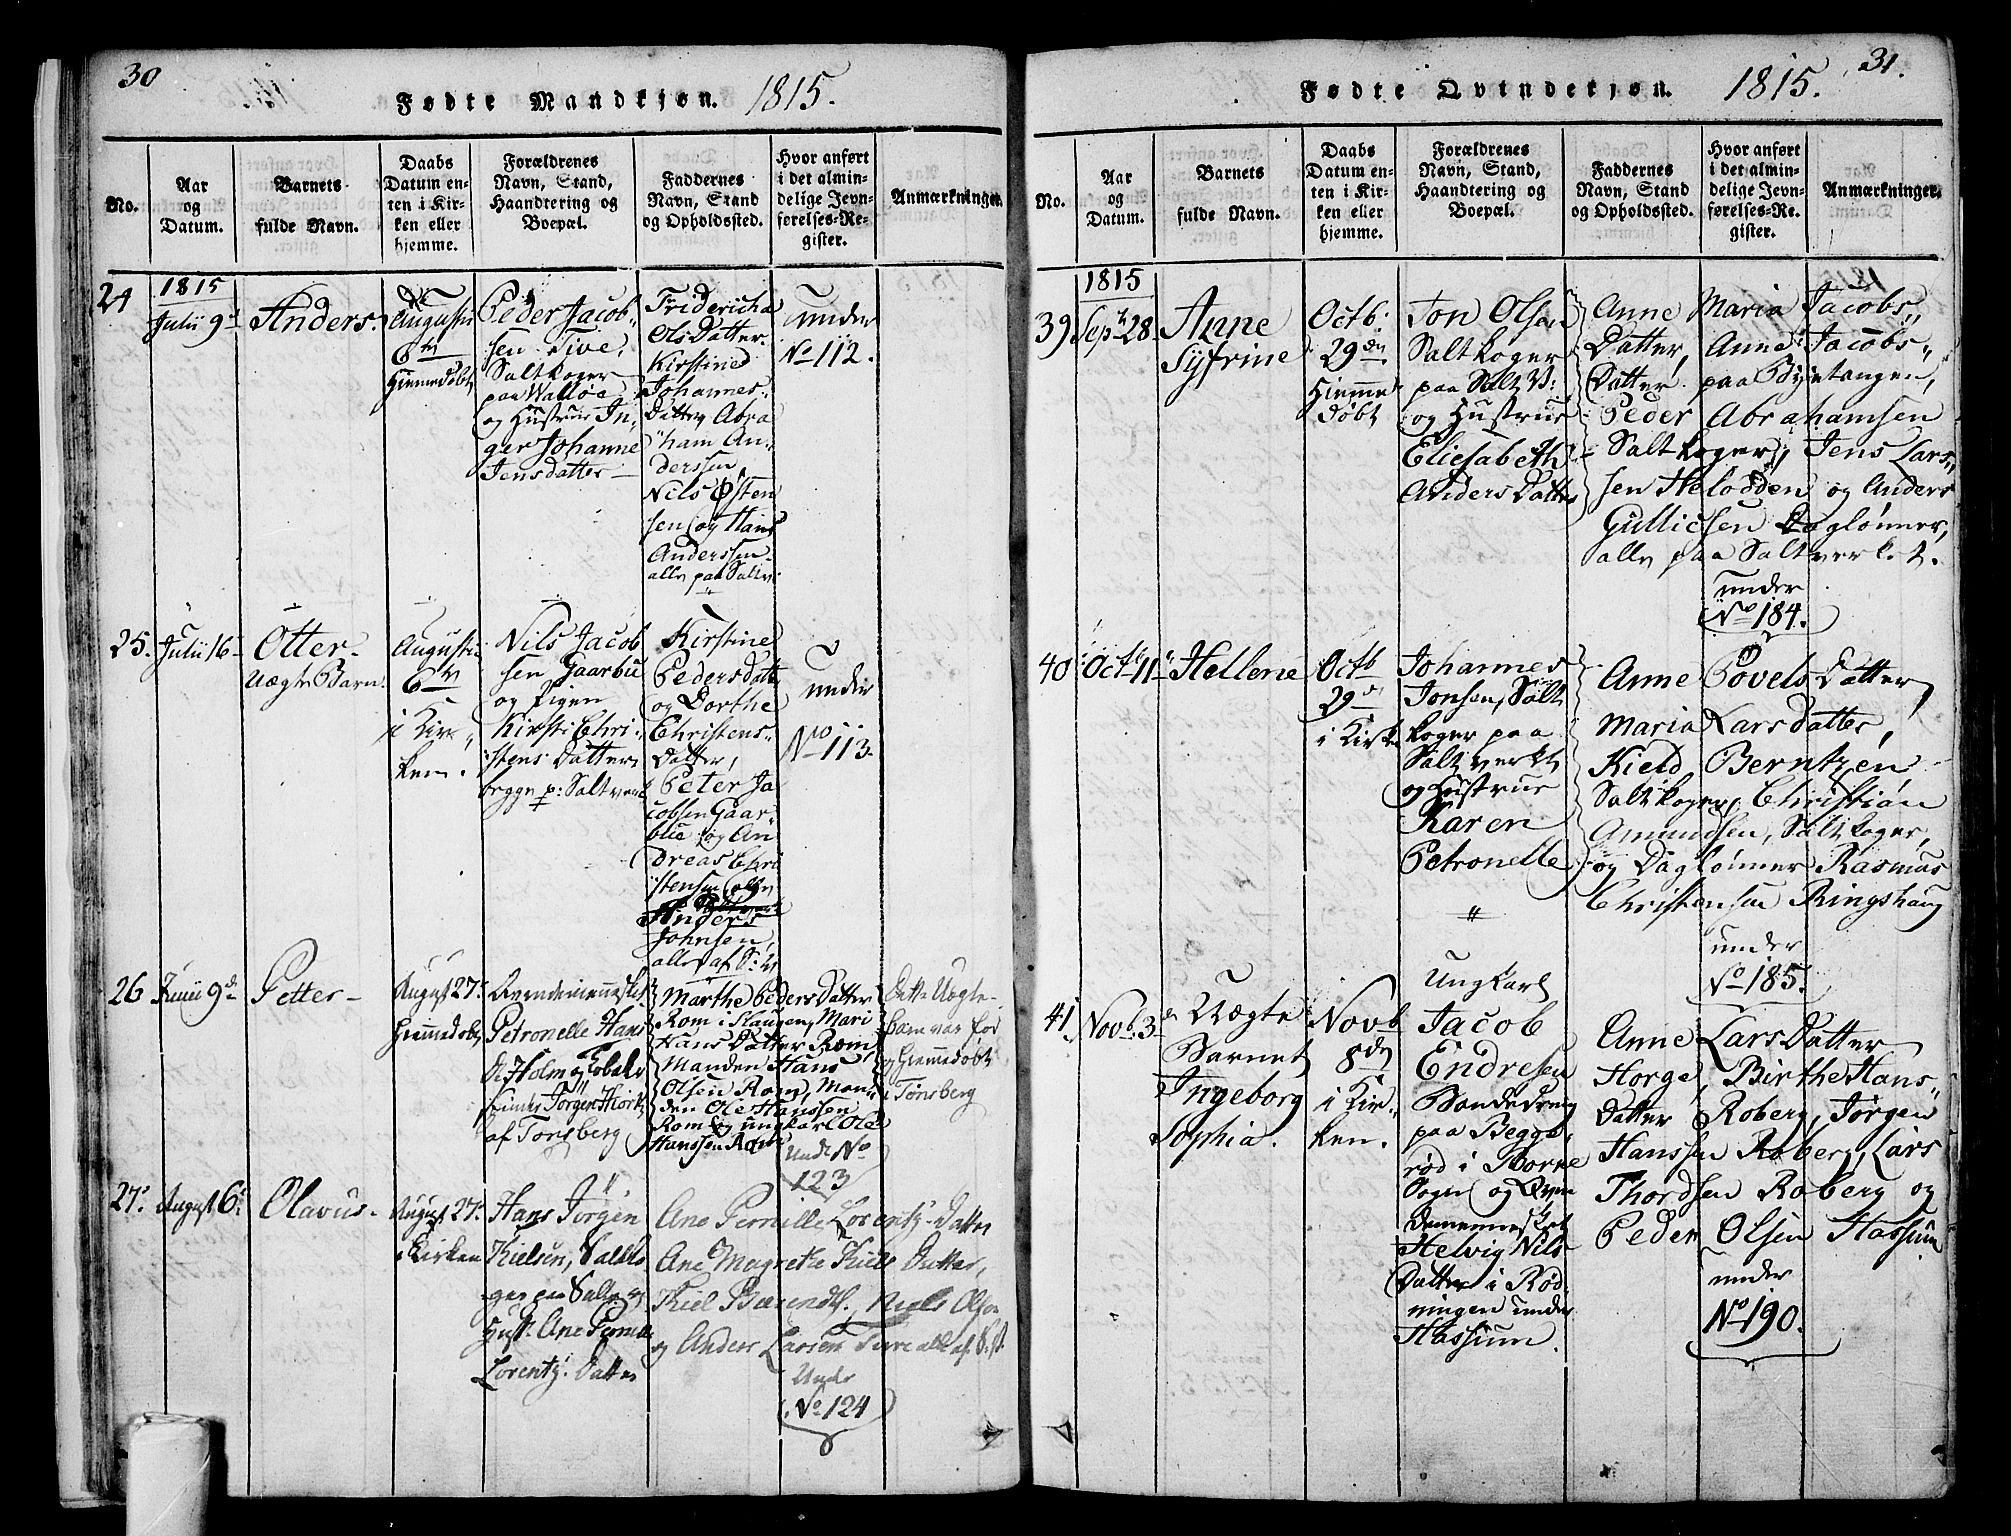 30
Fødte Mandkjøn. 1815.
No.
Aar
og
Datum.
Barnets
fulde Navn.
Daabs
Datum en-
ten i Kir-
ken eller
hjemme.
Forældrenes
Navn, Stand,
Haandtering og
Boepæl.
Faddernes
Navn, Stand
og Opholdssted.
Hvor anført
i det almin-
delige Jevn-
førelses-Re-
gister.
Anmærkninger.
24
1815
Julii 9de
Anders.
Augustii
6te
Hiemedøbt
Peder Jacob-
sen Tive,
Saltkoger
paa Walløe
og Hustrue In-
ger Johanne
Jensdatter
Fridericha
Ols Datter
Kirstine
Johannes-
Datter, Abra
ham An-
derssen
Nils Østen
sen og Hans
Anderssen
alle paa Saltv:
under
No 112.
25.
Julii 16
Otter
Uægte Barn.
Augustii
6te
i Kir-
ken.
Nils Jacob
sen Gaarbu
og Pigen
Kirsti Chri-
stens Datter
begge p: Saltverk
Kirstine
Peders Datter
og Dorthe
Christens-
Datter,
Peter Ja
cobsen Gaar-
bue og An
dreas Chri
stensen alle
Anders
Johnsen,
alle af S: V
under
No 113.
26
Junii 9de
Petter
August 27.
Hiemmedøbt
Qvindemennesket
Petronelle Hans
D: Holm og Tobaks
spinder Jørgen Hiort
af Tønsberg
Marthe Peders Datter
Rom i Slaugen, Mari
Hans Datter Rom
Manden Hans
Olsen Rom, Man-
den Ole Hanssen
Rom og ungkarl Ole
Hanssen Rom
Unde No
123
Dette Uægte
Barn var fød
og Hiemmedøbt
i Tønsberg
27.
August 6.
Olavus
August 27.
i Kirken
Hans Jørgen
Kielsen, Saltko
ger paa Saltv. og
Hust. Ane Pernille
Lorentz. Datter
Ane Pernille Lorentz. Datter
Ane Magrethe Kiels Datter,
Kiel Bærendts., Niels Olsen
og Anders Larsen Tive alle af S.
Unde
No 124
31.
Fødte Qvindekjøn. 1815.
No.
Aar
og
Datum.
Barnets
fulde Navn.
Daabs
Datum en-
ten i Kir-
ken eller
hjemme.
Forældrenes
Navn, Stand,
Haandtering og
Boepæl.
Faddernes
Navn, Stand
og Opholdssted.
Hvor anført
i det almin-
delige Jevn-
førelses-Re-
gister.
Anmærkninger.
1815
39
Sept 28.
Anne
Syfrine
Octb:
29de
Hiemme
døbt
Jon Olsen
Saltkoger
paa Salt V:
og Hustrue
Eliesabeth
Anders Datter
Anne Maria Jacobs-
Datter, Anne Jacobs-
Datter paa Byetangen,
Peder Abrahamsen
Saltkoger, Jens Lars-
sen Helodden og Anders
Gullicsen Daglønner,
alle paa Saltverket.
under
No 184.
40
Octb 11
Hellene
Octb
29de
i Kirk
Johannes
Jonsen, Salt
koger paa
Saltverkt
og Hustrue
Karen
Petronelle
Anne Povels Datter,
Maria Lars Datter,
Kield Berntzen
Saltkoger, Christian
Amundsen, Saltkoger,
og Daglønner Rasmus
Christensen Ringshaug
under
No 185.
41
Novb. 3
Uægte
Barnet
Ingeborg
Sophia.
Novb
8de
i Kir-
ken.
Ungkarl
Jacob
Endresen
Bondedreng
paa Begge
rød i Borre
Sogn og Qvin
demennesket
Helvig Nils-
Datter i Rød-
ningen under
Hassum.
Anne Lars Datter
Horge, Birthe Hans-
Datter Roberg, Jørgen
Hanssen Roberg, Lars
Thordsen Roberg og
Peder Olsen Hassum
under
No 190.